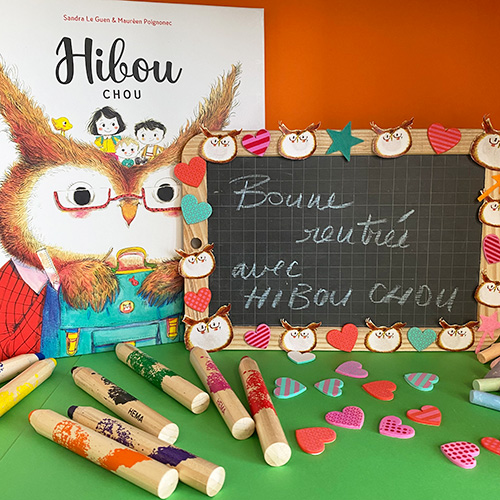 Sandra Le Guen & Maurèen Poignonec
Hibou
CHOU
Bonne
rentrée
avec
HIBOU CHOU
HEMA